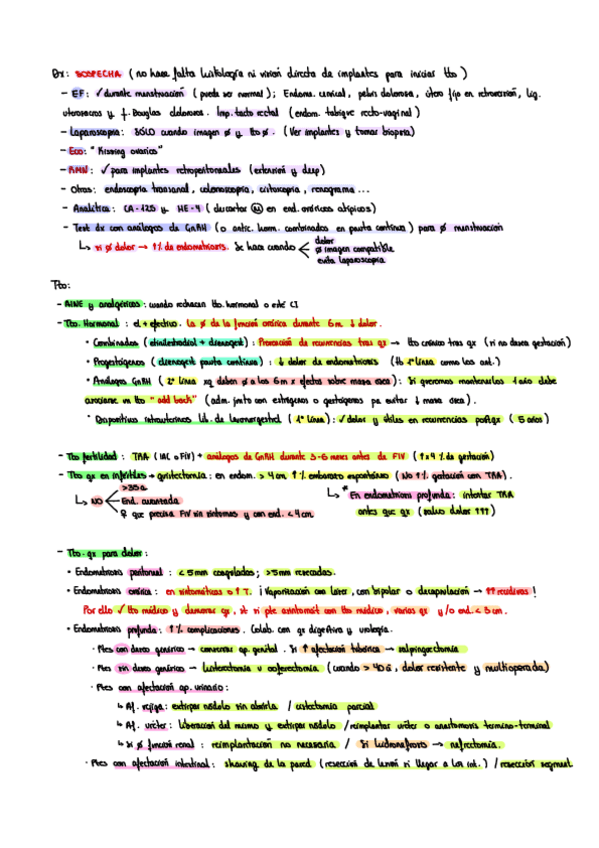 Dx: SOSPECHA (no hace falta histología ni visión directa de implantes para iniciar tto)
- EF: ✓ durante menstruación (puede ser normal); Endom. cervical, pelvis dolorosa, útero fijo en retroversión, lig.
uterosacros y f. Douglas dolorosos. Imp. tacto rectal (endom. tabique recto-vaginal)
- Laparoscopia: SÓLO cuando imagen ∅ y tto ∅. (Ver implantes y tomar biopsia)
- Eco: "Kissing ovarics"
- RMN: ✓ para implantes retroperitoneales (extensión y deep)
- Otras: endoscopia transanal, colonoscopia, cistoscopia, renograma...
- Analítica: CA-125 y HE-4 (descartar Ⓜ en end. ováricos atípicos)
- Test dx con análogos de GnRH (o antic. horm. combinados en pauta continua) para ∅ menstruación
↳ si ∅ dolor → ↑% de endometriosis. Se hace cuando
dolor
∅ imagen compatible
evita laparoscopia
Tto:
- AINE y analgésicos: cuando rechacen tto. hormonal o esté CI
- Tto. Hormonal: el + efectivo. La ∅ de la función ovárica durante 6m ↓ dolor.
• Combinados (etinilestradiol + dienogest): Prevención de recurrencias tras qx → tto crónico tras qx (si no desea gestación)
• Progestágenos (dienogest pauta continua): ↓ dolor de endometriosis (tb 1ª línea como los ant.)
• Análogos GnRH (2ª línea xq deben ∅ a los 6m x efectos sobre masa ósea): Si queremos mantenerlos 1 año debe
asociarse un tto "add back" (adm. junto con estrógenos o gestágenos pa evitar ↓ masa ósea).
• Dispositivo intrauterinos lib. de levonorgestrel (1ª línea): ✓ dolor y útiles en recurrencias post qx (5 años)
- Tto fertilidad: TRA (IAC o FIV) + análogos de GnRH durante 3-6 meses antes de FIV (↑x4 % de gestación)
- Tto qx en infértiles → quistectomía: en endom. > 4cm ↑% embarazo espontáneo (No ↑% gestación con TRA).
↳ NO
>35a
End. avanzada
♀ que precisa FIV sin síntomas y con end. < 4 cm
↳ * En endometriosis profunda: intentar TRA
antes que qx (salvo dolor ↑↑↑)
- Tto. qx para dolor:
• Endometriosis peritoneal: < 5mm coagulados; >5mm resecados.
• Endometriosis ovárica: en sintomáticas o ↑ T. ¡Vaporización con láser, con bipolar o decapsulación → ↑↑ recidivas!
Por ello ✓ tto médico y demorar qx, si pte asintomát con tto médico, varias qx y/o end. < 3 cm.
• Endometriosis profunda: ↑% complicaciones. Colab. con qx digestiva y urología.
· Ptes con deseo genésico → conservar ap. genital. Si ↑ afectación tubárica → salpinguectomía
· Ptes sin deseo genésico → histerectomía u ooferectomía (cuando > 40 a, dolor resistente y multioperada)
· Ptes con afectación ap. urinario:
↳ Af. vejiga: extirpar nódulo sin abrirla / cistectomía parcial
↳ Af. uréter: liberación del mismo y extirpar nódulo / reimplantar uréter o anastomosis termino-terminal
↳ si ∅ función renal: reimplantación no necesaria / Si hidronefrosis → nefrectomía.
· Ptes con afectación intestinal: shaving de la pared (resección de lesión si llegar a luz int.) / resección segment.